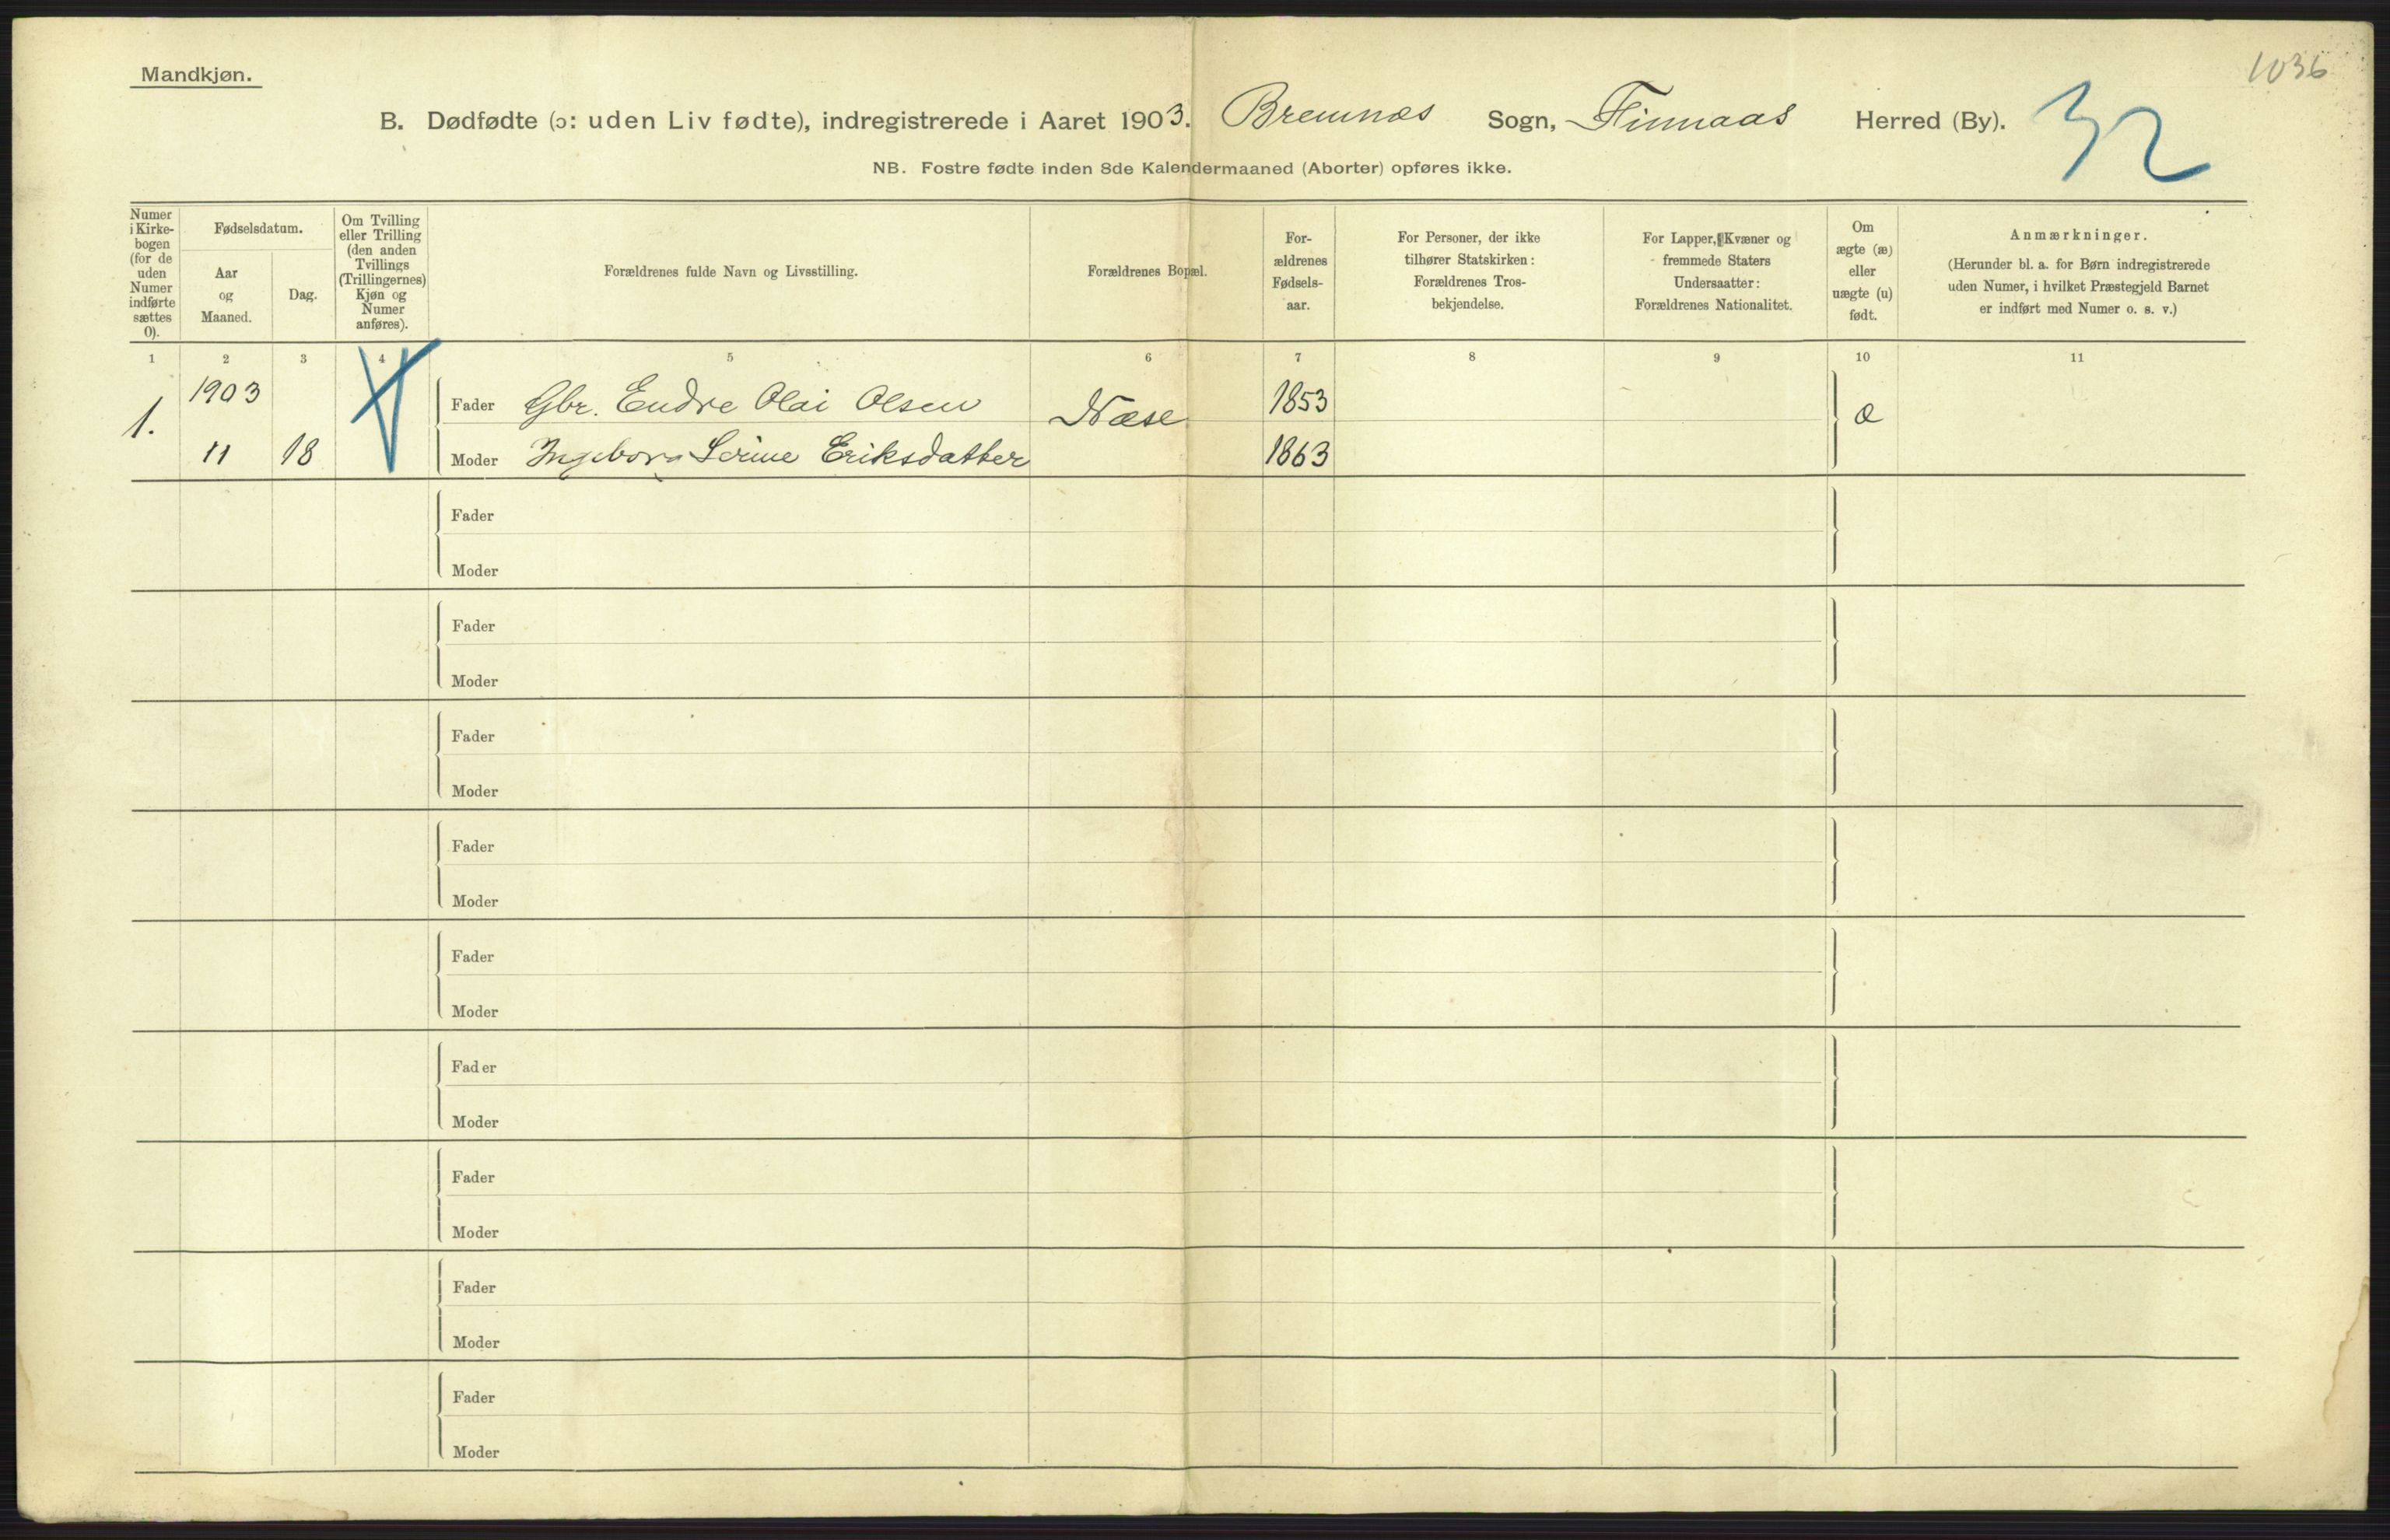 Mandkjøn.
1036
B. Dødfødte (ɔ: uden Liv fødte), indregistrerede i Aaret 1903. Bremnæs Sogn, Finnaas Herred (By).
32
NB. Fostre fødte inden 8de Kalendermaaned (Aborter) opføres ikke.
Numer i Kirke-bogen (for de uden Numer indførte sættes 0).
Fødselsdatum.
Aar og Maaned.
Dag.
Om Tvilling eller Trilling (den anden Tvillings (Trillingernes) Kjøn og Numer anføres).
Forældrenes fulde Navn og Livsstilling.
Forældrenes Bopæl.
For-ældrenes Fødsels-aar.
For Personer, der ikke tilhører Statskirken: Forældrenes Tros-bekjendelse.
For Lapper, Kvæner og fremmede Staters Undersaatter: Forældrenes Nationalitet.
Om ægte (æ) eller uægte (u) født.
Anmærkninger.
(Herunder bl. a. for Børn indregistrerede uden Numer, i hvilket Præstegjeld Barnet er indført med Numer o. s. v.)
1 2 3 4 5 6 7 8 9 10 11
1. 1903 Fader Gbr. Endre Olai Olsen Næse 1853 æ
11 18 Moder Ingeborg Serine Eriksdatter 1863
Fader
Moder
Fader
Moder
Fader
Moder
Fader
Moder
Fader
Moder
Fader
Moder
Fader
Moder
Fader
Moder
Fader
Moder